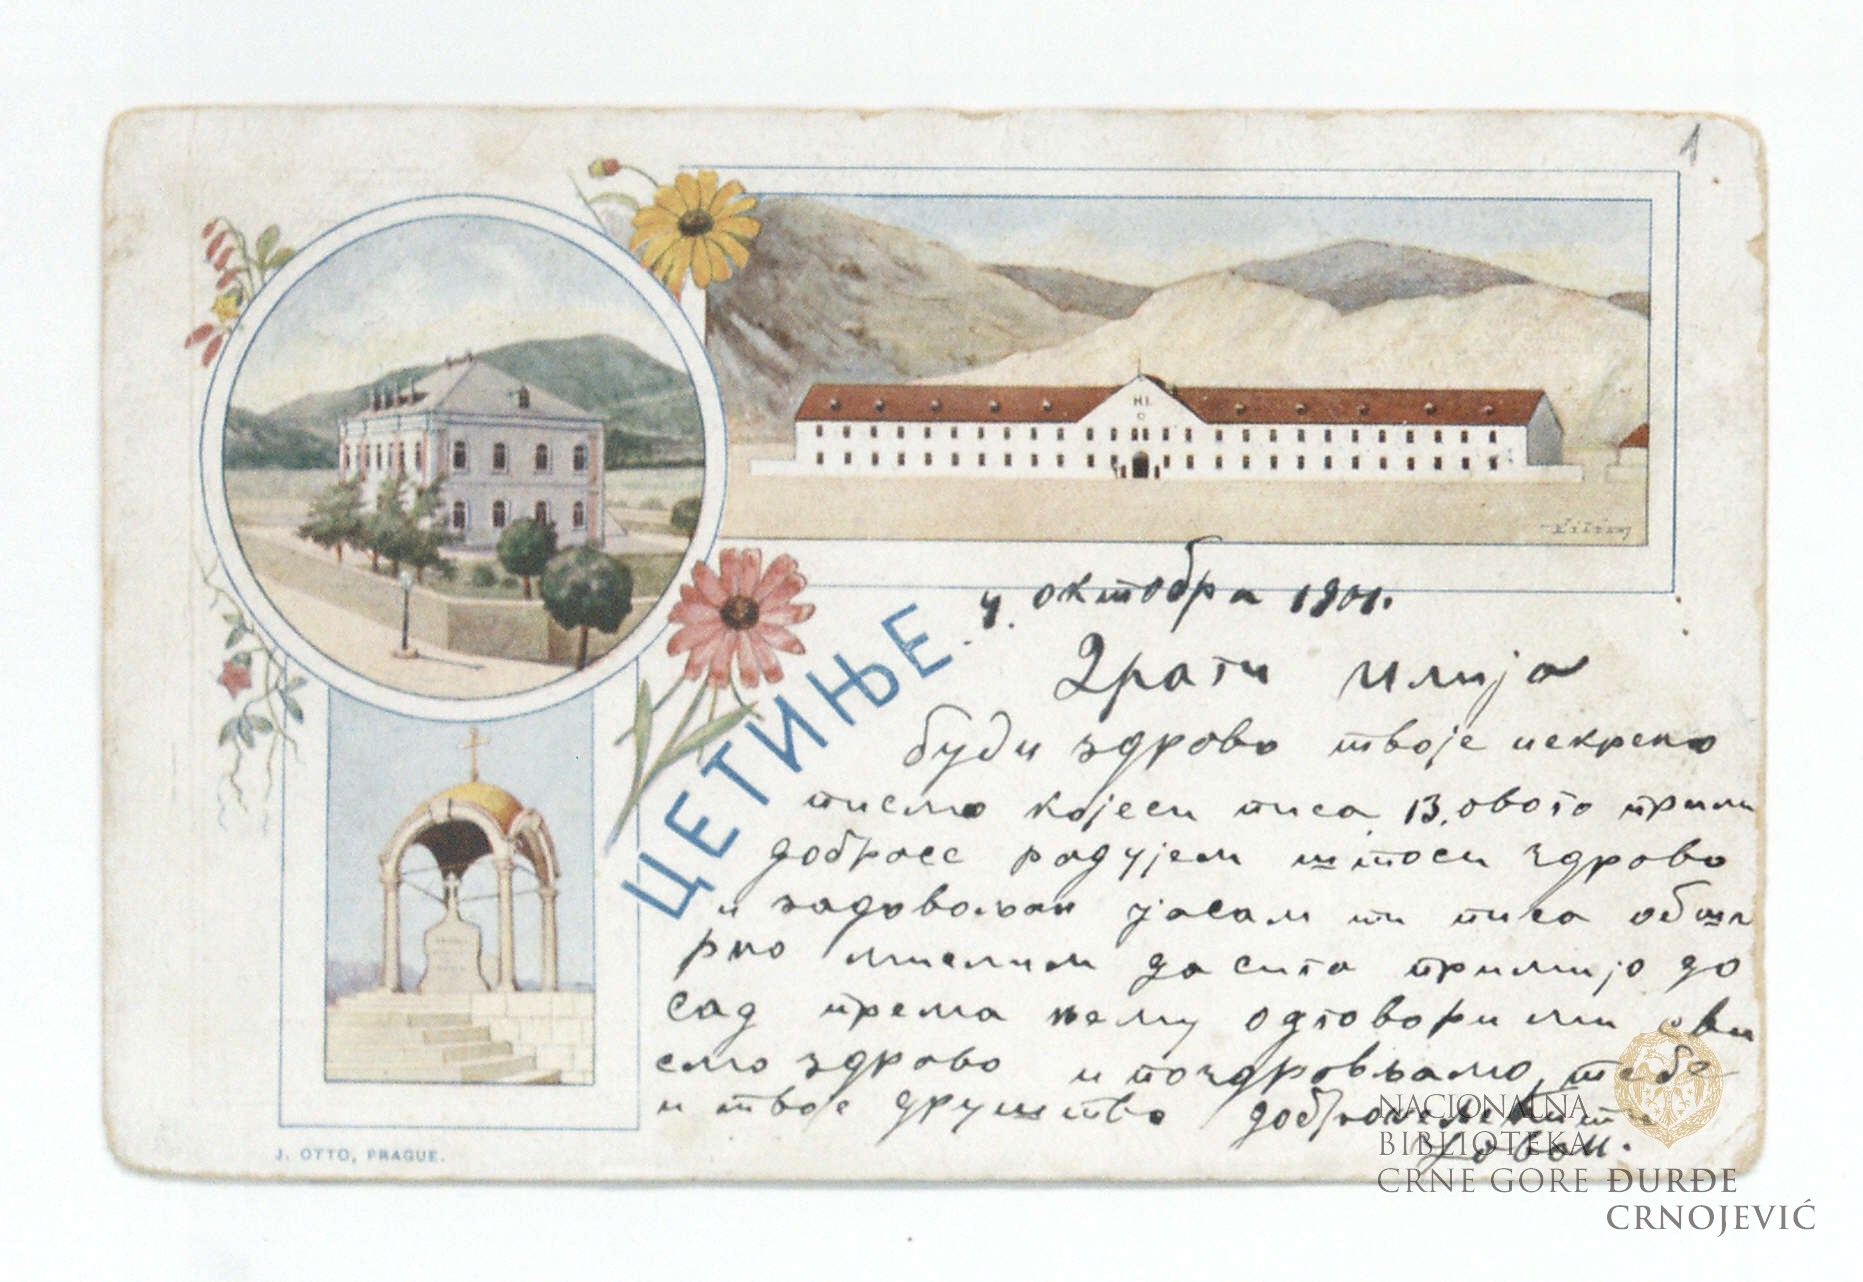 1
H I.
ЦЕТИЊЕ.
4. октобра 1901.
Драги Илија
буди здраво твоје искрено
писмо којеси писа 13. овога прими
добросе радујем штоси здраво
и задовољан јасам ти писа обши
рно мислим да сига примијо до
сад према њему одговори ми сви
смо здраво и поздровљамо тебе
и твое друштво
J. OTTO, PRAGUE.
NACIONALNA
BIBLIOTEKA
CRNE GORE ĐURĐE
CRNOJEVIĆ